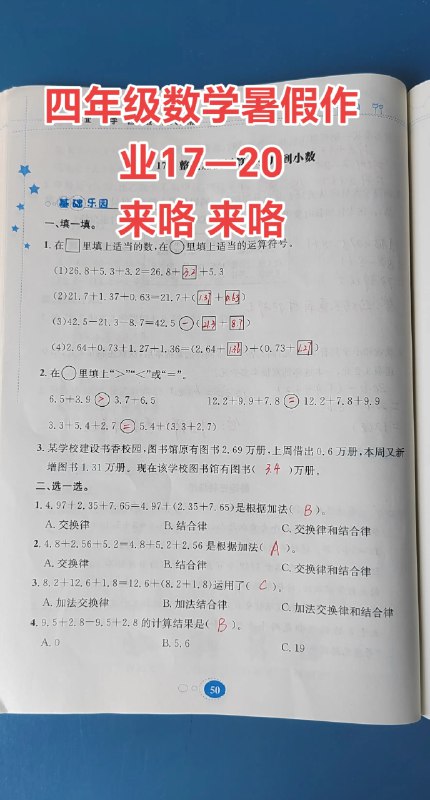 四年级数学暑假作
业17—20
来咯 来咯
利小数
基础乐园
一、填一填。
1.在□里填上适当的数,在○里填上适当的运算符号。
(1)26.8+5.3+3.2=26.8+3.2+5.3
(2)21.7+1.37+0.63=21.7+(1.37+0.63)
(3)42.5-21.3-8.7=42.5-(21.3+8.7)
(4)2.64+0.73+1.27+1.36=(2.64+1.36)+(0.73+1.27)
2.在○里填上“>”“<”或“=”。
6.5+3.9>3.7+6.5 12.2+9.9+7.8=12.2+7.8+9.9
3.3+5.4+2.7=5.4+(3.3+2.7)
3.某学校建设书香校园,图书馆原有图书2.69万册,上周借出0.6万册,本周又新
增图书1.31万册。现在该学校图书馆有图书(3.4)万册。
二、选一选。
1.4.97+2.35+7.65=4.97+(2.35+7.65)是根据加法(B)。
A.交换律 B.结合律 C.交换律和结合律
2.4.8+2.56+5.2=4.8+5.2+2.56是根据加法(A)。
A.交换律 B.结合律 C.交换律和结合律
3.8.2+12.6+1.8=12.6+(8.2+1.8)运用了(C)。
A.加法交换律 B.加法结合律 C.加法交换律和结合律
4.9.5+2.8-9.5+2.8的计算结果是(B)。
A.0 B.5.6 C.19
50